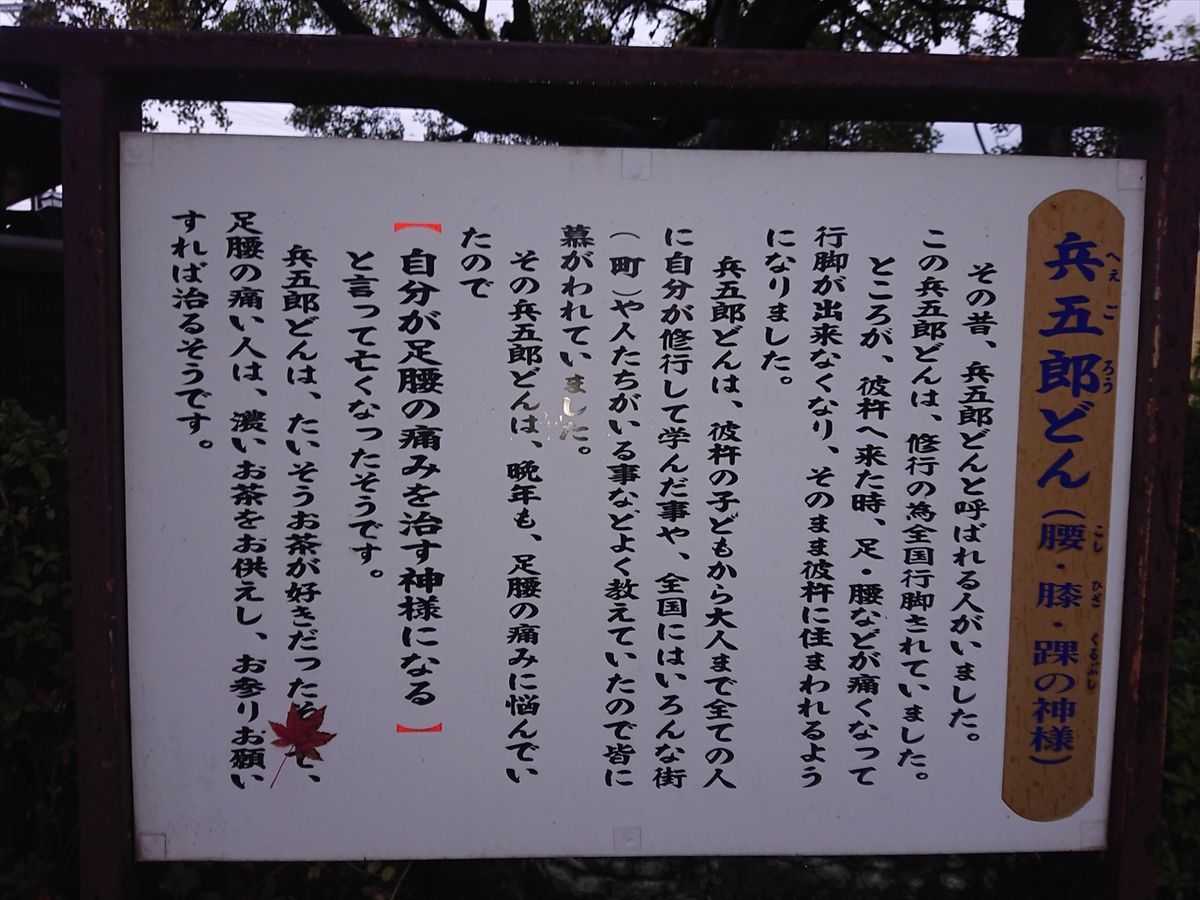 兵五郎どん（腰・膝・踝の神様）
へえ ご ろう こし ひざ くるぶし
その昔、兵五郎どんと呼ばれる人がいました。
この兵五郎どんは、修行の為全国行脚されていました。
ところが、彼杵へ来た時、足・腰などが痛くなって
行脚が出来なくなり、そのまま彼杵に住まわれるよう
になりました。
兵五郎どんは、彼杵の子どもから大人まで全ての人
に自分が修行して学んだ事や、全国にはいろんな街
（町）や人たちがいる事などよく教えていたので皆に
慕がわれていました。
その兵五郎どんは、晩年も、足腰の痛みに悩んでい
たので
【自分が足腰の痛みを治す神様になる】
と言って亡くなったそうです。
兵五郎どんは、たいそうお茶が好きだったそ、
足腰の痛い人は、濃いお茶をお供えし、お参りお願い
すれば治るそうです。